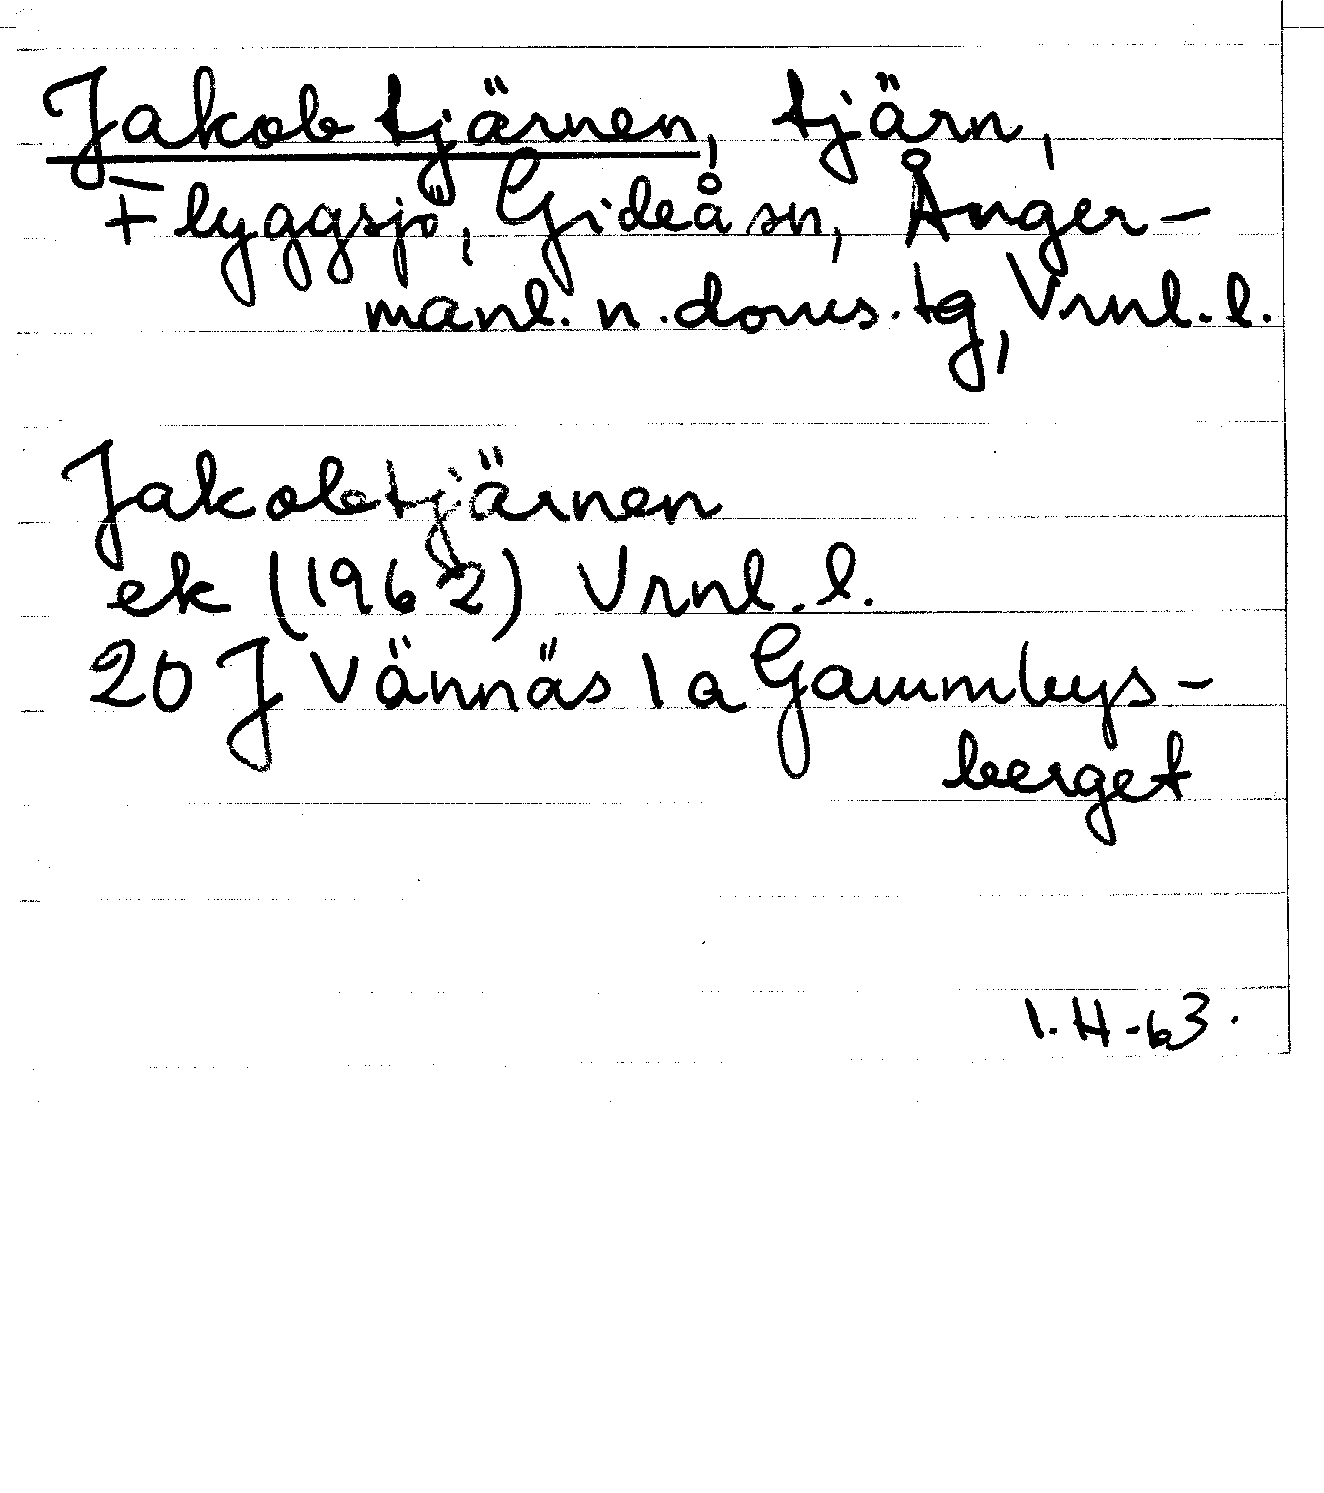 Jakobtjärnen, tjärn,
Flyggsjö, Gideå sn, Ånger-
manl. n. doms. tg, Vrnl. l.
Jakobtjärnen
ek (1962) Vrnl. l.
20 J Vännäs 1 a Gammbys-
berget
I. H -63.